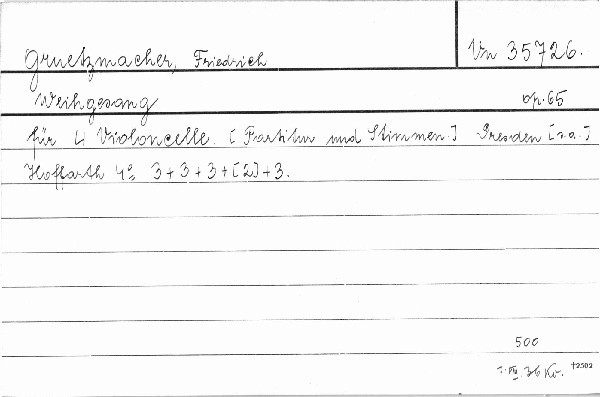 Gruetzmacher, Friedrich
Vn 35726.
Weihgesang
op. 65
für 4 Violoncelle. [Partitur und Stimmen.] Dresden [s.a.]
Hoffarth 4° 3+3+3+[2]+3.
500
36 Kr. †2502